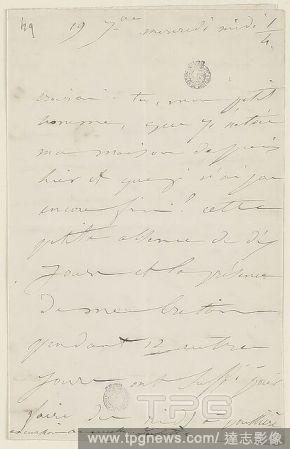 49
19 7bre mercredi midi 1/4
crois-tu, mon petit
homme, que je nettoie
ma maison depuis
hier et que je n'ai pas
encore fini ? cette
petite absence de dix
jours et la présence
de mes bretons
pendant 12 autre
jours ont suffi pour
faire de
TPG
www.tpgnews.com / 達志影像